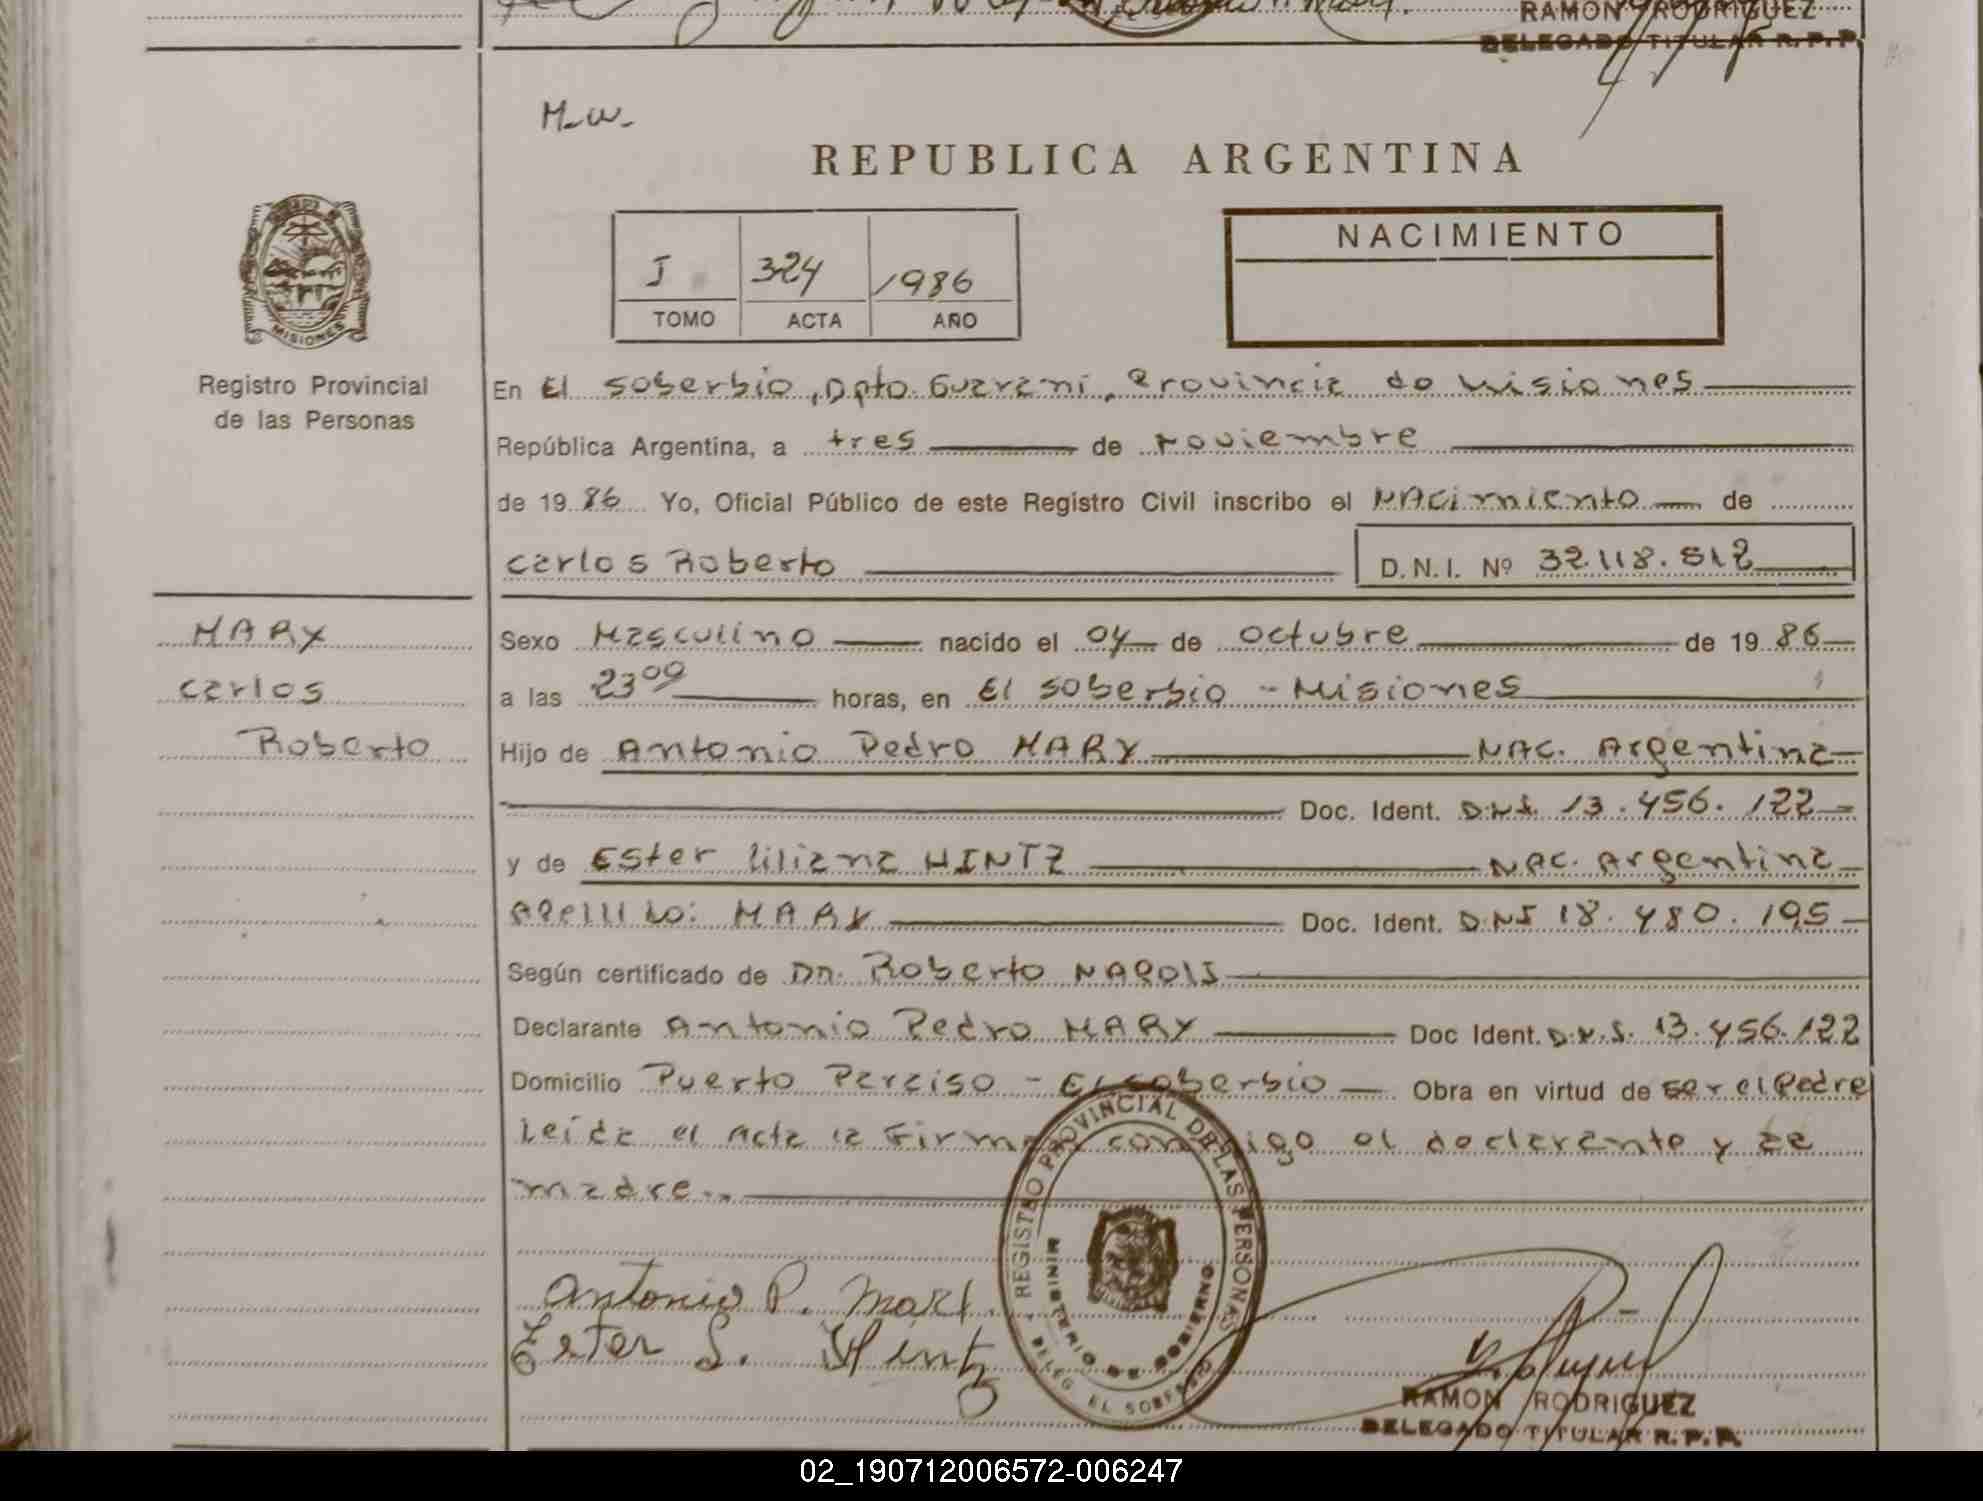 RAMON RODRIGUEZ
DELEGADO TITULAR R.P.P.
M.W.
REPUBLICA ARGENTINA
MISIONES
Registro Provincial
de las Personas
I 324 1986
TOMO ACTA AÑO
NACIMIENTO
En El Soberbio, Dpto. Guarani, Provincia de Misiones
República Argentina, a tres de Noviembre
de 19 86 Yo, Oficial Público de este Registro Civil inscribo el NAcimiento de
Carlos Roberto D.N.I. Nº 32.118.512
MARX
Carlos
Roberto
Sexo Masculino nacido el 04 de Octubre de 19 86
a las 23 00 horas, en El Soberbio - Misiones
Hijo de Antonio Pedro MARX NAC. Argentina
Doc. Ident. D.N.I. 13.456.122
y de Ester Liliana HINTZ NAC. Argentina
Apellido: MARX Doc. Ident. DNI 18.480.195
Según certificado de Dr. Roberto NAPOLI
Declarante Antonio Pedro MARX Doc Ident. D.N.I. 13.456.122
Domicilio Puerto Paraiso - El Soberbio Obra en virtud de ser el Padre
Leida el Acta la Firma conmigo el declarante y la
madre.
REGISTRO PROVINCIAL DE LAS PERSONAS
MINISTERIO DE GOBIERNO
DELEG. EL SOBERBIO
Antonio P. Marx
Ester L. Hintz
RAMON RODRIGUEZ
DELEGADO TITULAR R.P.P.
02_190712006572-006247